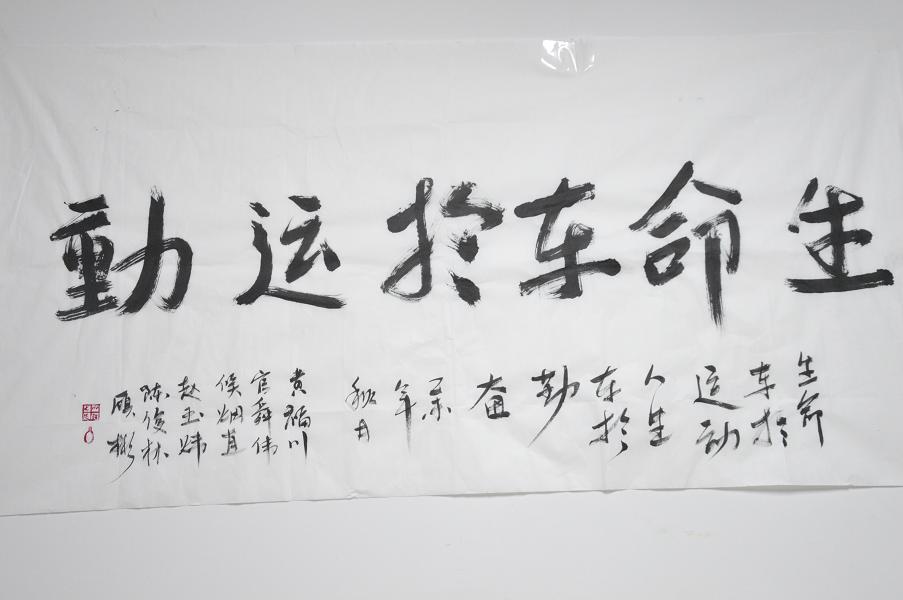 生命在於运動
生命
在於
运动
人生
在於
勤
奋
年
秋月
黄福川
官舜伟
赵玉炜
陈俊林